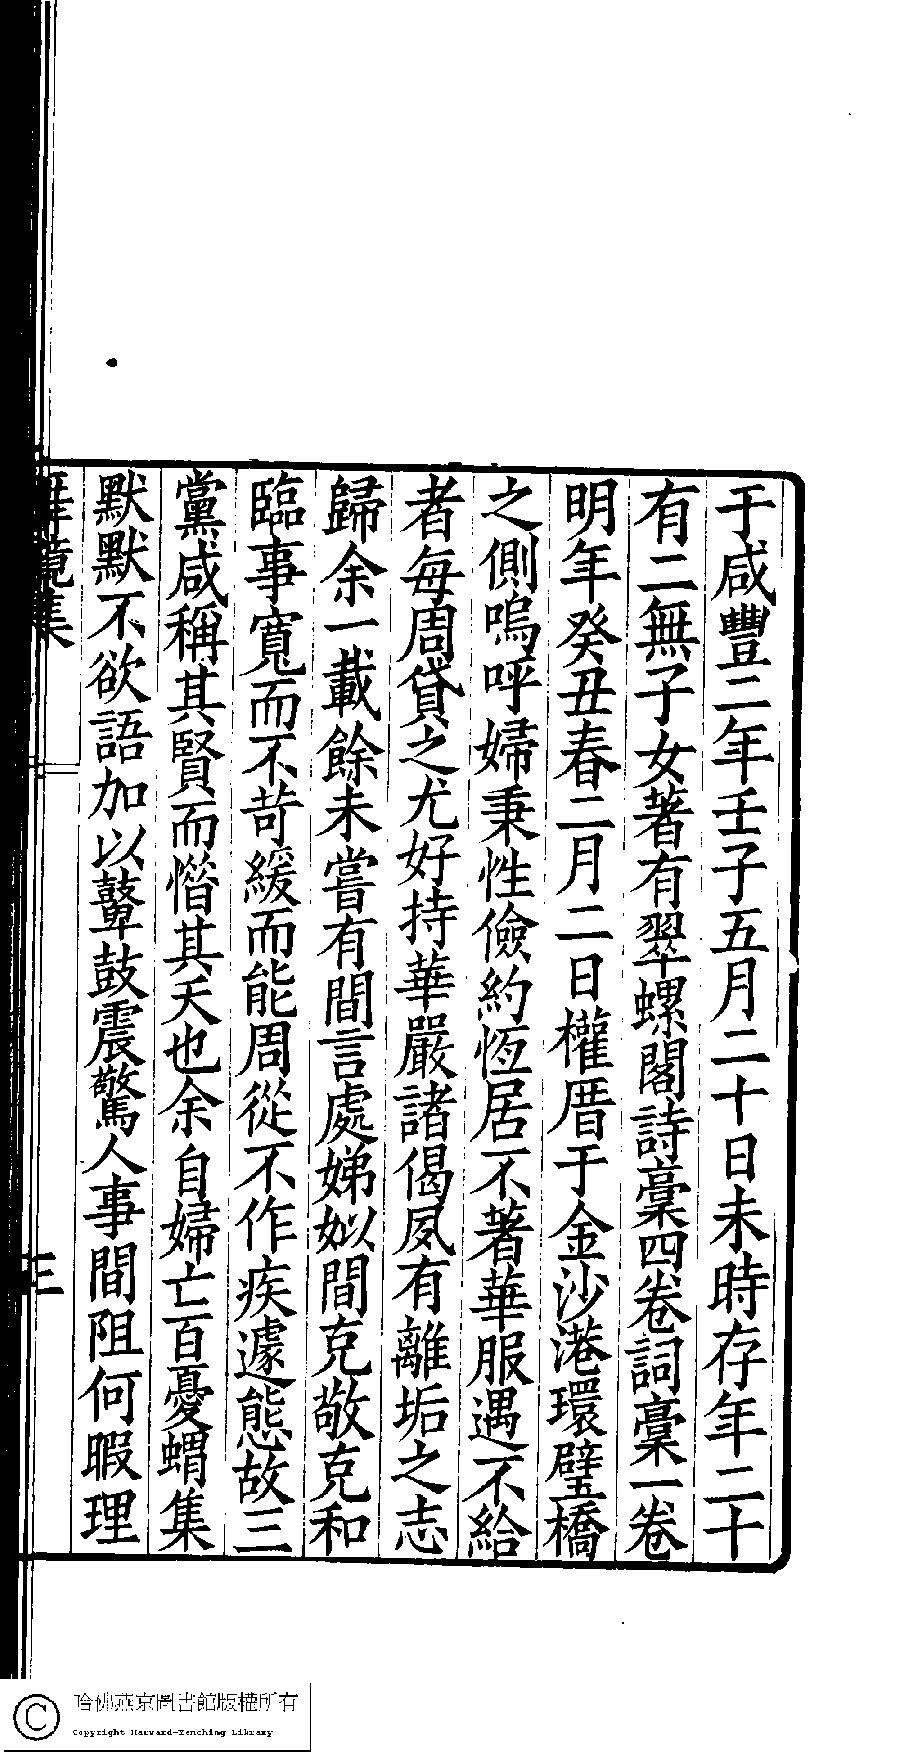 于咸豐二年壬子五月二十日未時存年二十
有二無子女著有翠螺閣詩稾四卷詞稾一卷
明年癸丑春二月二日權厝于金沙港環璧橋
之側嗚呼婦秉性儉約恆居不著華服遇不給
者每周貸之尤好持華嚴諸偈夙有離垢之志
歸余一載餘未嘗有間言處娣姒間克敬克和
臨事寬而不苛緩而能周從不作疾遽態故三
黨咸稱其賢而憯其夭也余自婦亡百憂蝟集
默默不欲語加以鼙鼓震驚人事間阻何暇理
集
三
哈佛燕京圖書館版權所有
Copyright Harvard-Yenching Library